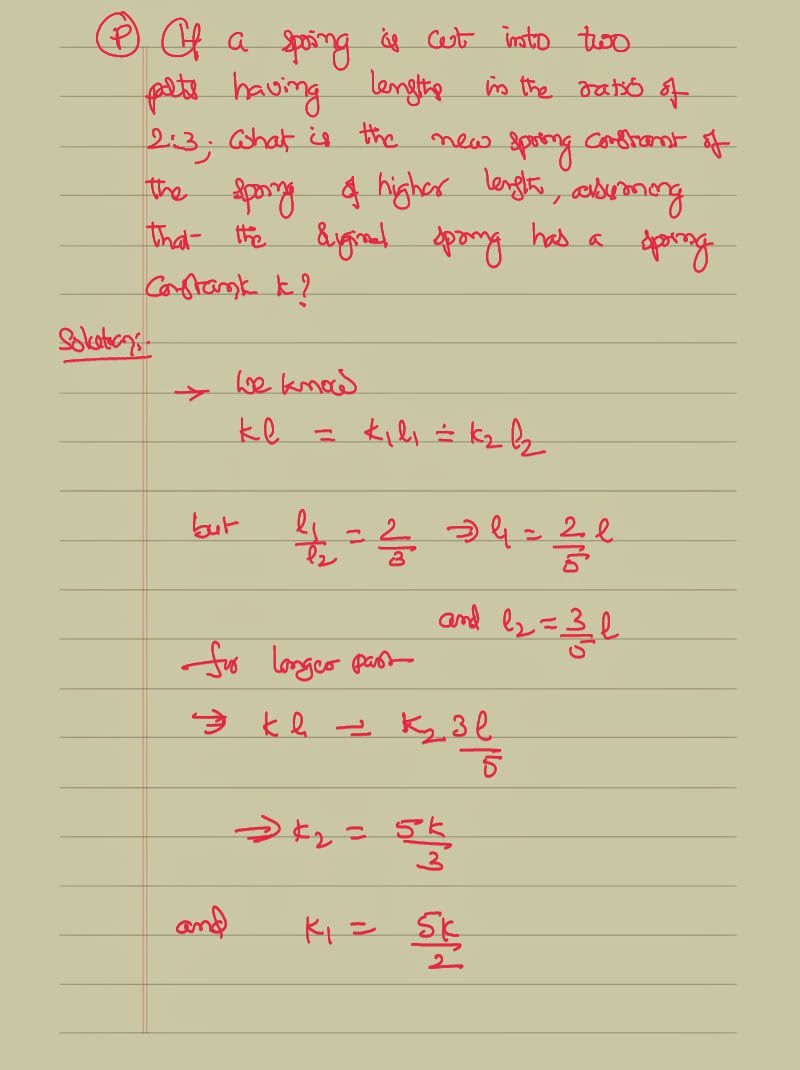 (P) If a spring is cut into two
parts having lengths in the ratio of
2:3, what is the new spring constant of
the spring of higher length, assuming
that the original spring has a spring
constant k?
Solution:-
→ We know
kl = k₁l₁ = k₂l₂
but l₁/l₂ = 2/3 ⇒ l₁ = 2/5 l
and l₂ = 3/5 l
for longer part
⇒ kl = k₂ 3l/5
⇒ k₂ = 5k/3
and k₁ = 5k/2